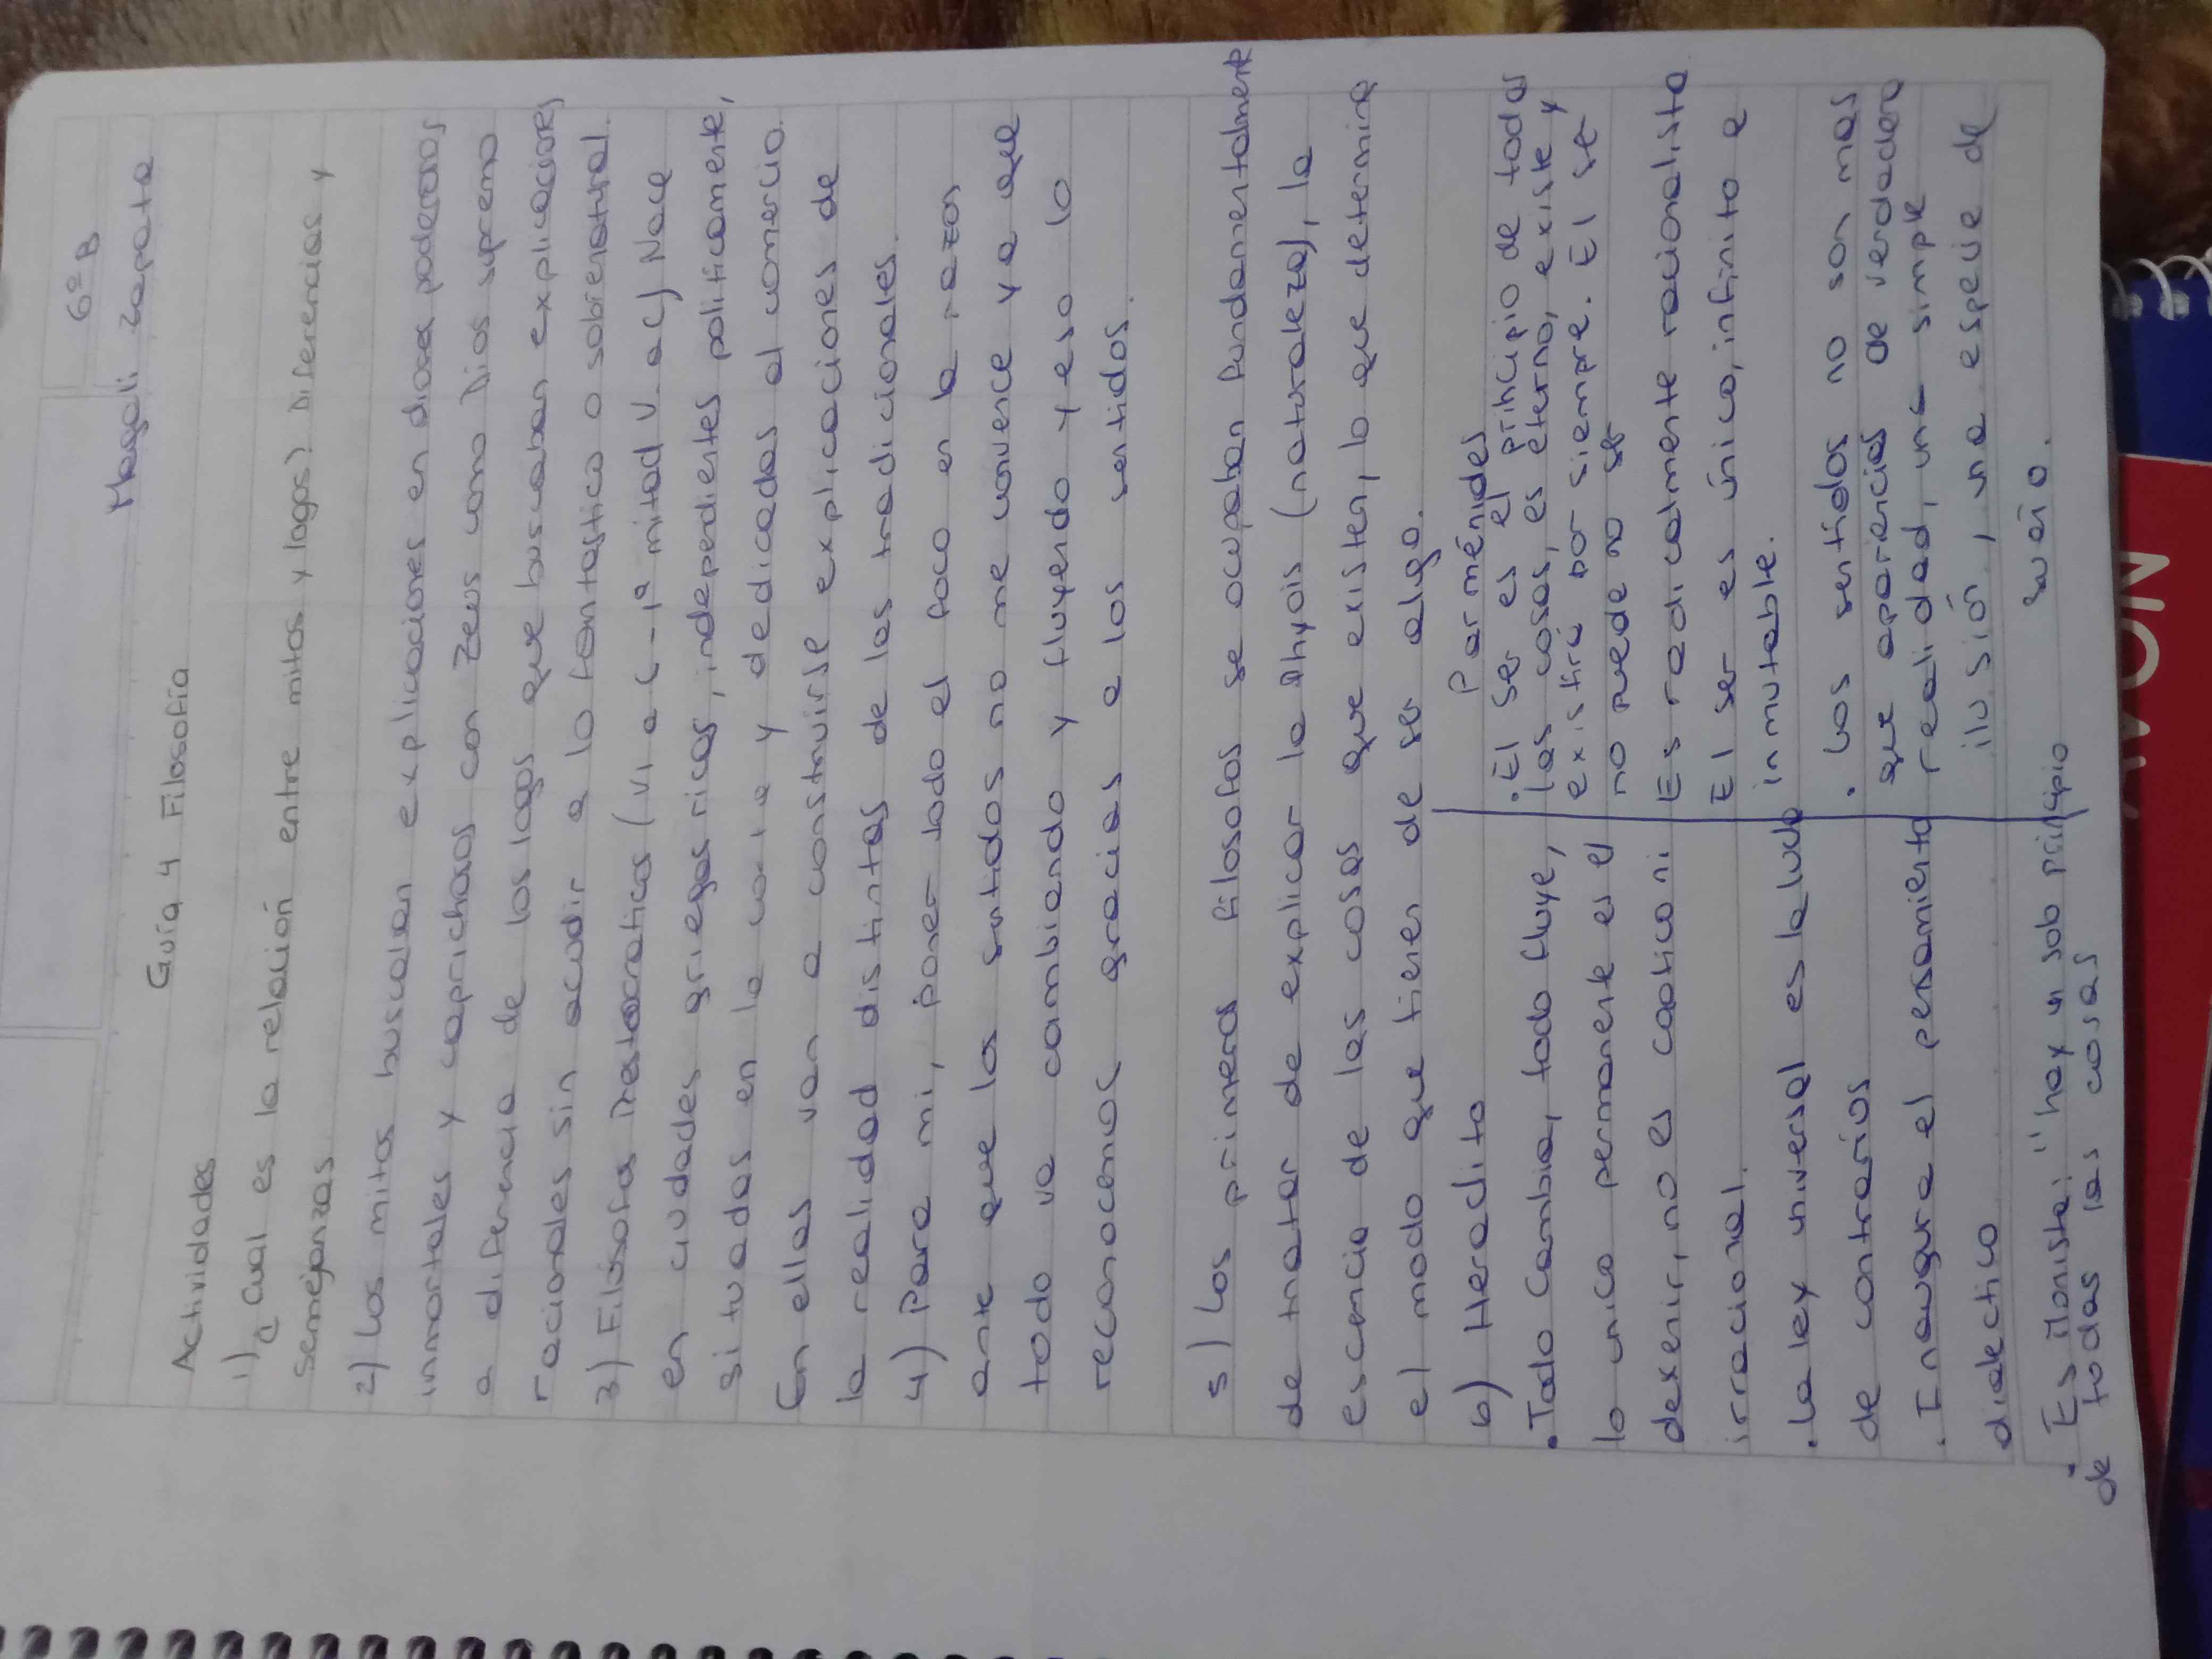 6º B
Magali Zapata
Guía 4 Filosofía
Actividades
1) ¿Cual es la relación entre mitos y logos? Diferencias y
semejanzas
2) Los mitos buscaban explicaciones en dioses poderosos
inmortales y caprichosos con Zeus como Dios supremo
a diferencia de los logos que buscaban explicaciones
racionales sin acudir a lo fantastico o sobrenatural.
3) Filosofos Presocraticos (VI a C - 1ª mitad V. a C) Nace
en ciudades griegas ricas, independientes politicamente,
situadas en la costa y dedicadas al comercio.
En ellas van a construirse explicaciones de
la realidad distintas de las tradicionales.
4) Para mi, poner todo el foco en la razon
ante que los sentidos no me convence ya que
todo va cambiando y fluyendo y eso lo
reconocemos gracias a los sentidos.
5) Los primeros filosofos se ocupaban fundamentalmente
de tratar de explicar la Physis (naturaleza), la
escencia de las cosas que existen, lo que determina
el modo que tienen de ser algo.
6) Heraclito
• Todo Cambia, todo fluye,
lo unico permanente es el
devenir, no es caotico ni
irracional.
• La ley universal es la lucha
de contrarios
• Inaugura el pensamiento
dialectico
• Es Monista: "hay un solo principio
de todas las cosas
Parménides
• El ser es el principio de todas
las cosas, es eterno, existe y
existirá por siempre. El ser
no puede no ser
Es radicalmente racionalista
El ser es único, infinito e
inmutable.
• Los sentidos no son mas
que apariencias de verdadera
realidad, una simple
ilusión, una especie de
sueño.
NOVA